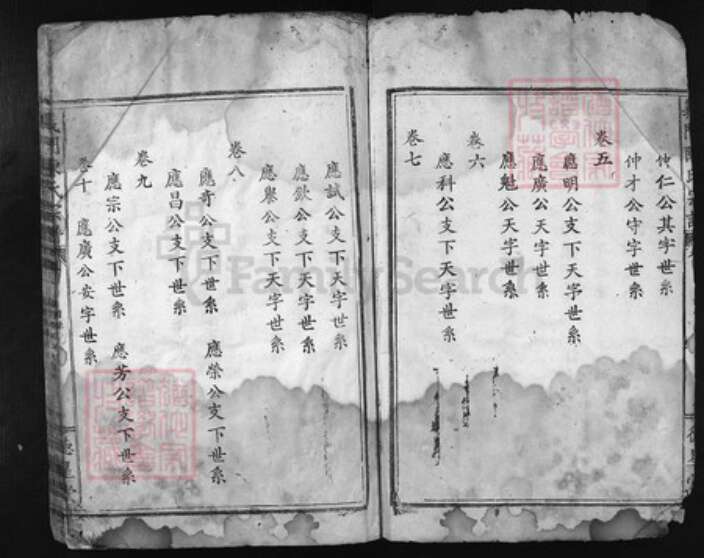 仲仁公其字世系
仲才公守字世系
卷五
應明公支下天字世系
應廣公天字世系
應魁公天字世系
卷六
應科公支下天字世系
卷七
應試公支下天字世系
應欽公支下天字世系
應舉公支下天字世系
卷八
應奇公支下世系 應榮公支下世系
應昌公支下世系
卷九
應宗公支下世系 應芳公支下世系
卷十 應廣公安字世系
德星堂
FamilySearch